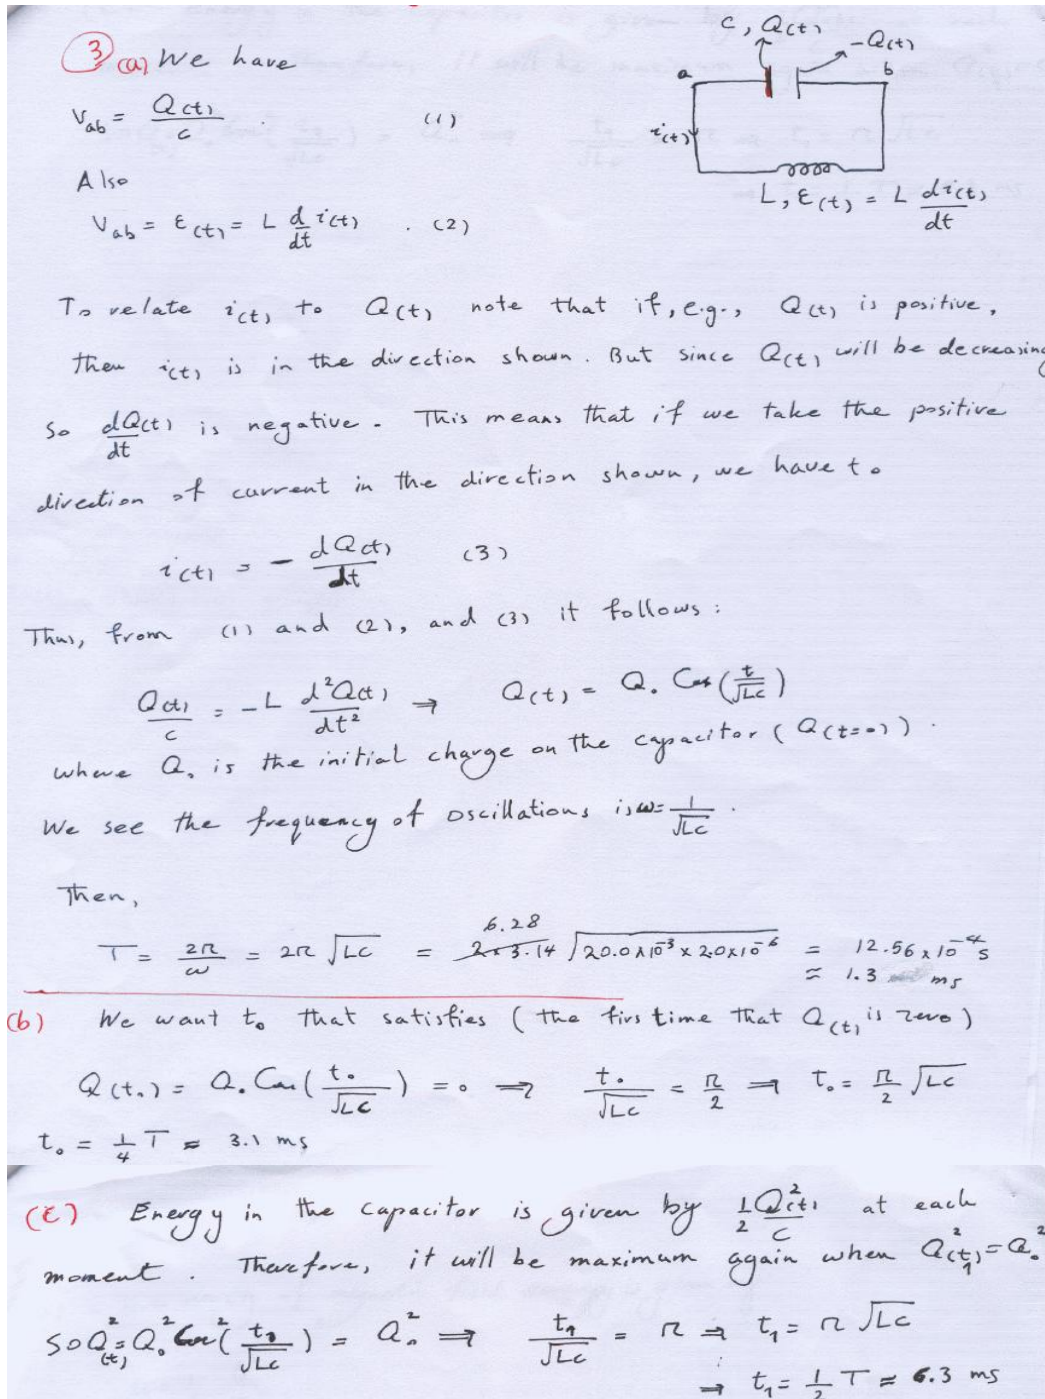 3 (a) We have
C, Q(t)
-Q(t)
a
b
V_ab = Q(t)/C (1)
i(t)
Also
L, ε(t) = L di(t)/dt
V_ab = ε(t) = L d/dt i(t) . (2)
To relate i(t) to Q(t) note that if, e.g., Q(t) is positive,
then i(t) is in the direction shown. But since Q(t) will be decreasing
So dQ(t)/dt is negative. This means that if we take the positive
direction of current in the direction shown, we have to
i(t) = - dQ(t)/dt (3)
Thus, from (1) and (2), and (3) it follows:
Q(t)/C = -L d²Q(t)/dt² → Q(t) = Q₀ Cos(t/√LC)
where Q₀ is the initial charge on the capacitor (Q(t=0)).
We see the frequency of oscillations is ω = 1/√LC .
Then,
6.28
T = 2π/ω = 2π √LC = 2×3.14 √20.0×10⁻³ × 2.0×10⁻⁶ = 12.56 × 10⁻⁴ s
≈ 1.3 ms
(b) We want t₀ that satisfies (the firs time that Q(t) is zero)
Q(t₀) = Q₀ Cos(t₀/√LC) = 0 ⇒ t₀/√LC = π/2 ⇒ t₀ = π/2 √LC
t₀ = 1/4 T ≈ 3.1 ms
(c) Energy in the capacitor is given by 1/2 Q²(t)/C at each
moment. Therefore, it will be maximum again when Q²(t₁) = Q₀²
So Q²(t) = Q₀² Cos²(t₁/√LC) = Q₀² ⇒ t₁/√LC = π ⇒ t₁ = π √LC
→ t₁ = 1/2 T ≈ 6.3 ms